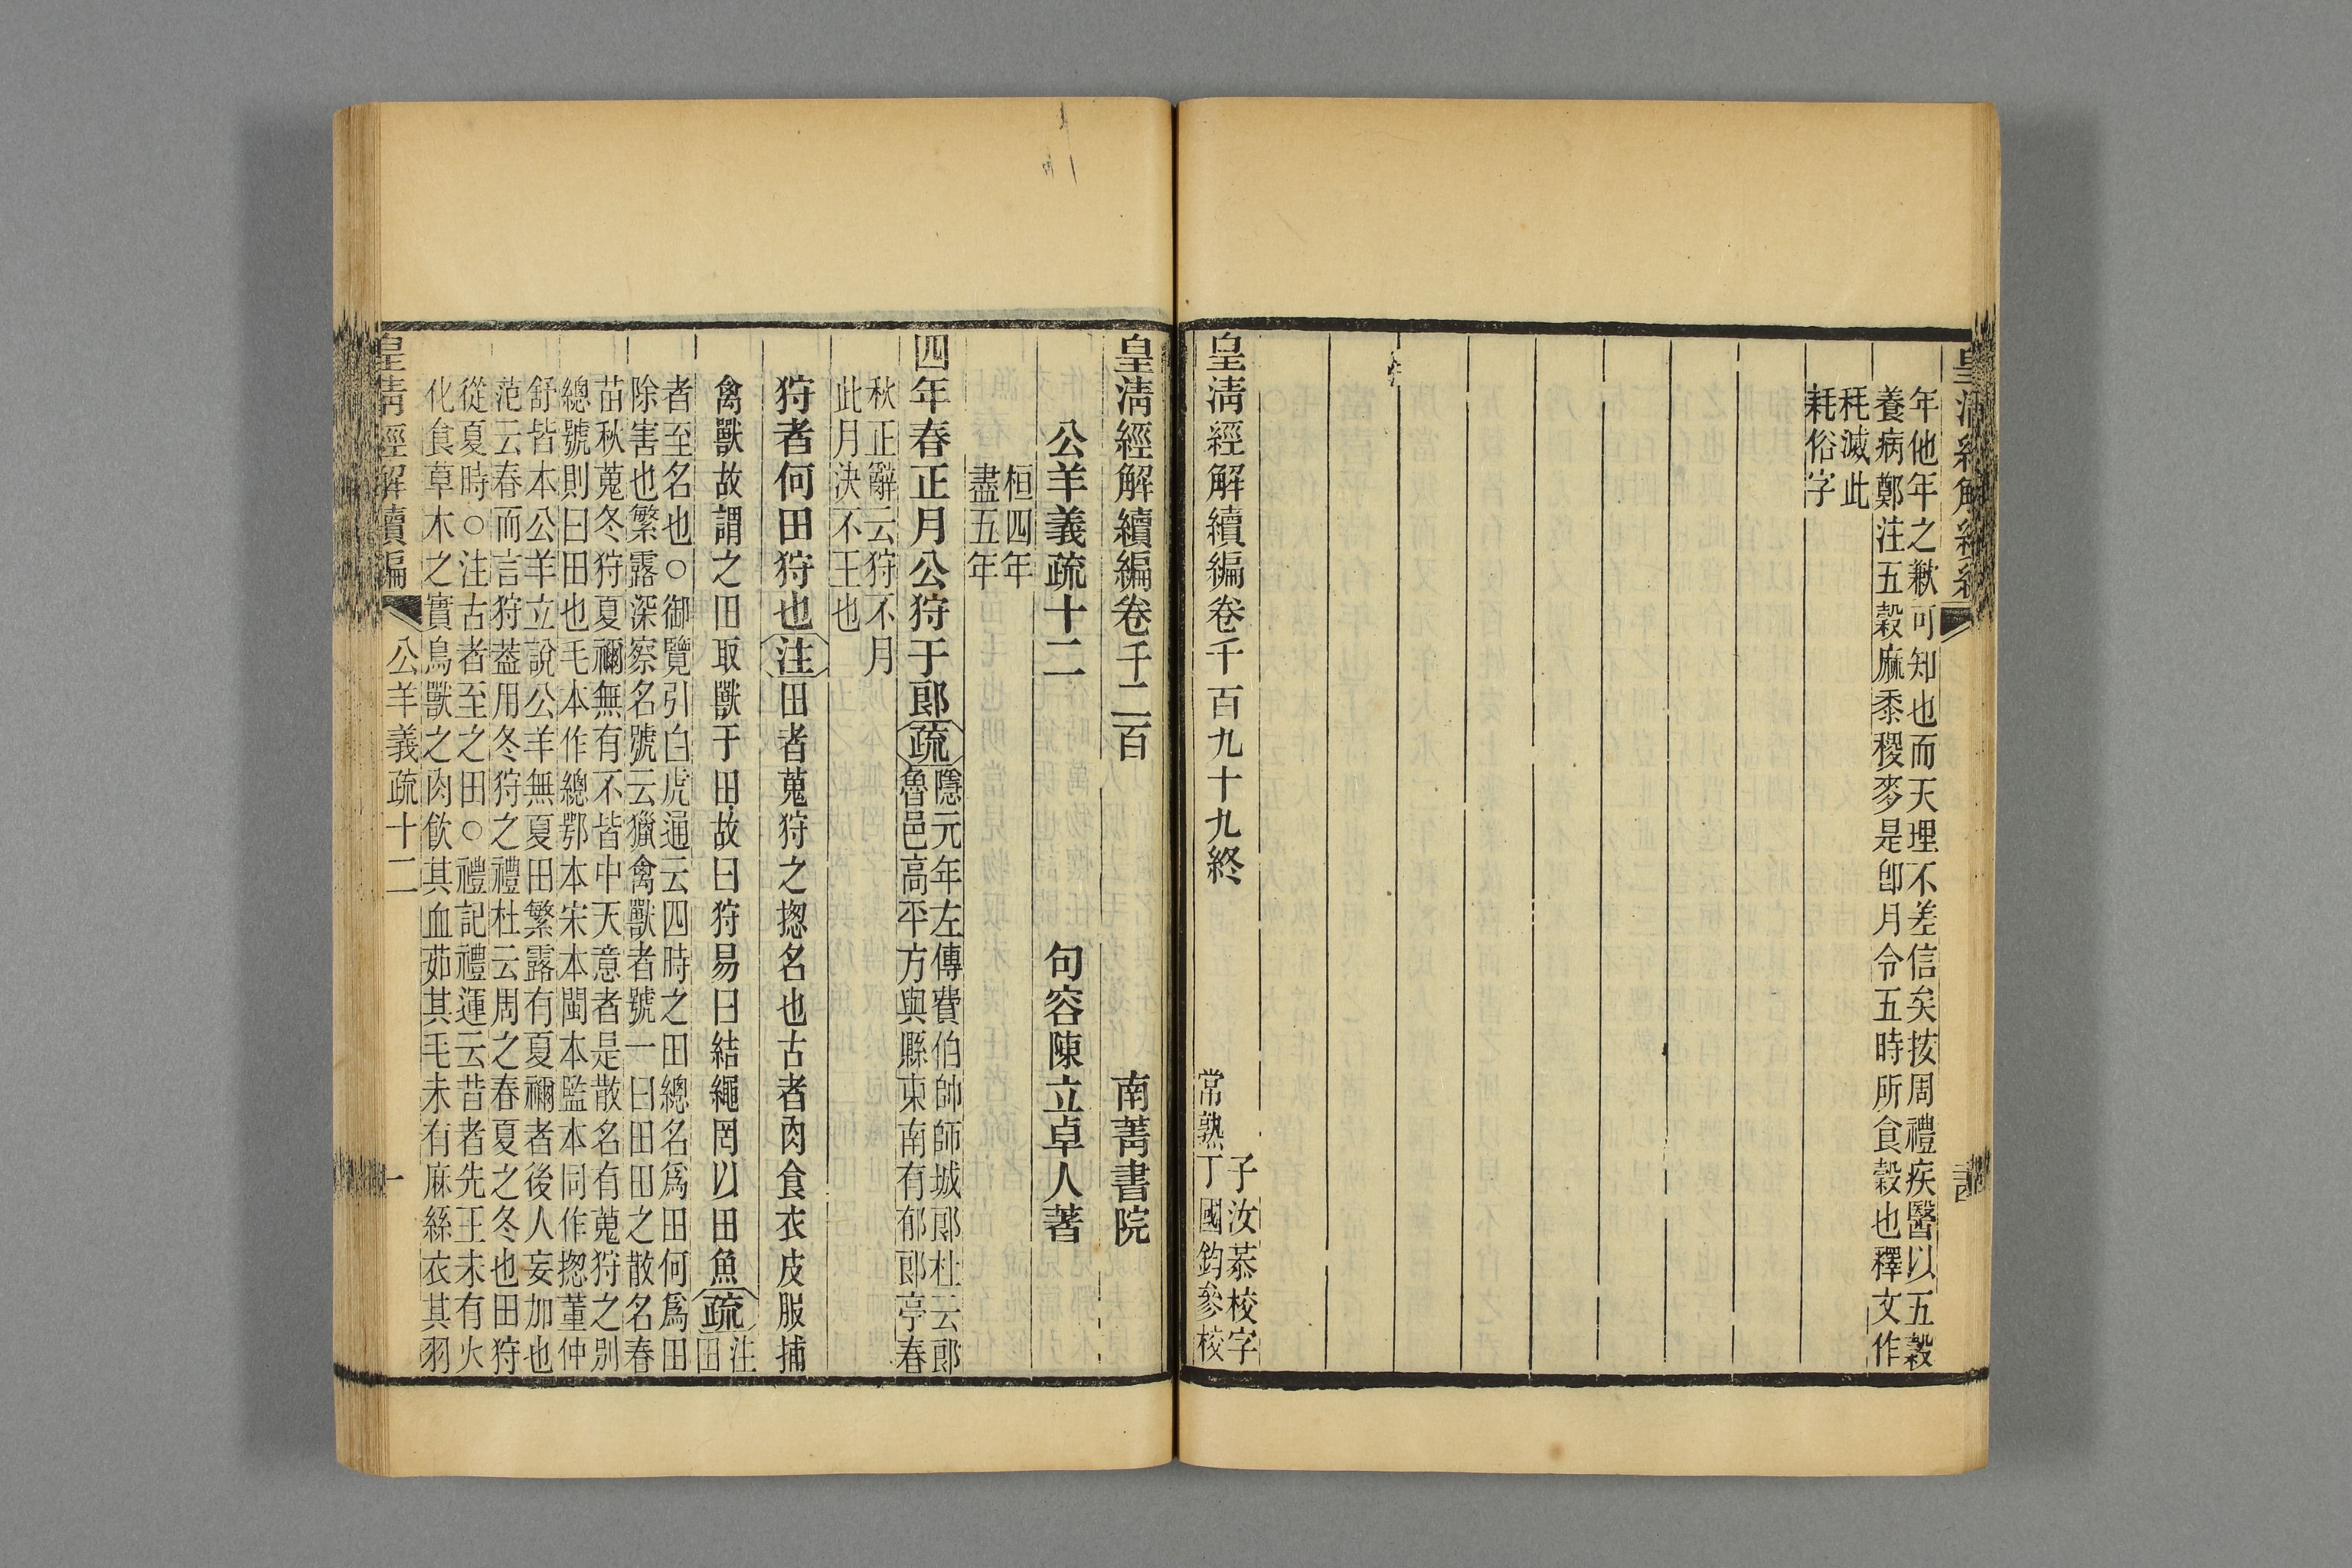 年他年之歉可知也而天理不差信矣按周禮疾醫以五穀
養病鄭注五穀麻黍稷麥是卽月令五時所食穀也釋文作
秏滅此
耗俗字
皇淸經解續編卷千百九十九終
子汝恭校字
常熟丁國鈞參校
皇淸經解續編卷千二百
南菁書院
公羊義疏十二
句容陳立卓人著
桓四年
盡五年
四年春正月公狩于郎疏
隱元年左傳費伯帥師城郎杜云郎
魯邑高平方與縣東南有郁郎亭春
秋正辭云狩不月
此月決不王也
狩者何田狩也注田者蒐狩之揔名也古者肉食衣皮服捕
禽獸故謂之田取獸于田故曰狩易曰結繩罔以田魚疏
注
田
者至名也○御覽引白虎通云四時之田總名爲田何爲田
除害也繁露深察名號云獵禽獸者號一曰田田之散名春
苗秋蒐冬狩夏獮無有不皆中天意者是散名有蒐狩之別
總號則曰田也毛本作總鄂本宋本閩本監本同作揔董仲
舒皆本公羊立說公羊無夏田繁露有夏獮者後人妄加也
范云春而言狩蓋用冬狩之禮杜云周之春夏之冬也田狩
從夏時○注古者至之田○禮記禮運云昔者先王未有火
化食草木之實鳥獸之肉飮其血茹其毛未有麻絲衣其羽
皇淸經解續編
公羊義疏十二
一